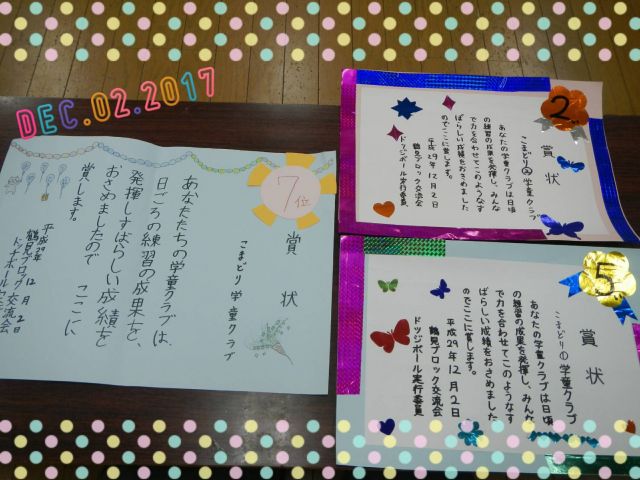 DEC.02.2017
7位
賞状
こまどり学童クラブ
あなたたちの学童クラブは、
日ごろの練習の成果を、
発揮しすばらしい成績を
おさめましたので ここに
賞します。
平成29年 12月2日
鶴見ブロック交流会
ドッジボール交流会
2
賞状
こまどり②学童クラブ
あなたの学童クラブは日頃
の練習の成果を発揮し、みんな
で力を合わせてこのようなす
ばらしい成績をおさめました
のでここに賞します。
平成29年12月2日
鶴見ブロック交流会
ドッジボール実行委員
5
賞状
こまどり①学童クラブ
あなたの学童クラブは日頃
の練習の成果を発揮し、みんな
で力を合わせてこのようなす
ばらしい成績をおさめました
のでここに賞します。
平成29年12月2日
鶴見ブロック交流会
ドッジボール実行委員